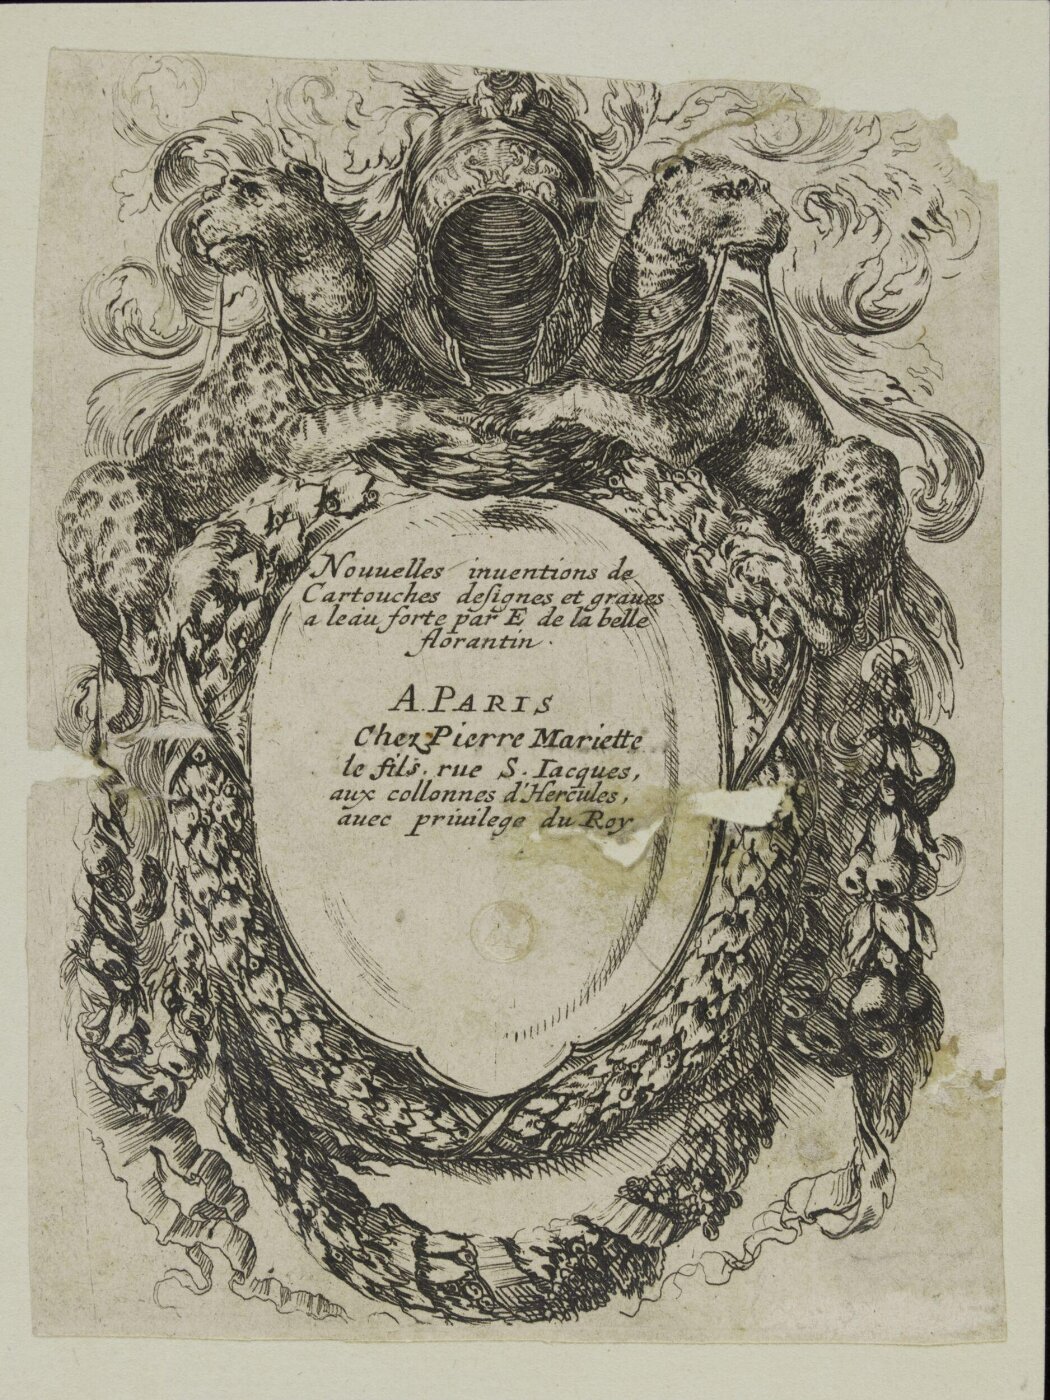 Nouuelles inuentions de
Cartouches deſignes et graues
a leau forte par E de la belle
florantin.
A. PARIS
Chez Pierre Mariette
le fils. rue S. Iacques,
aux collonnes d'Hercules,
auec priuilege du Roy